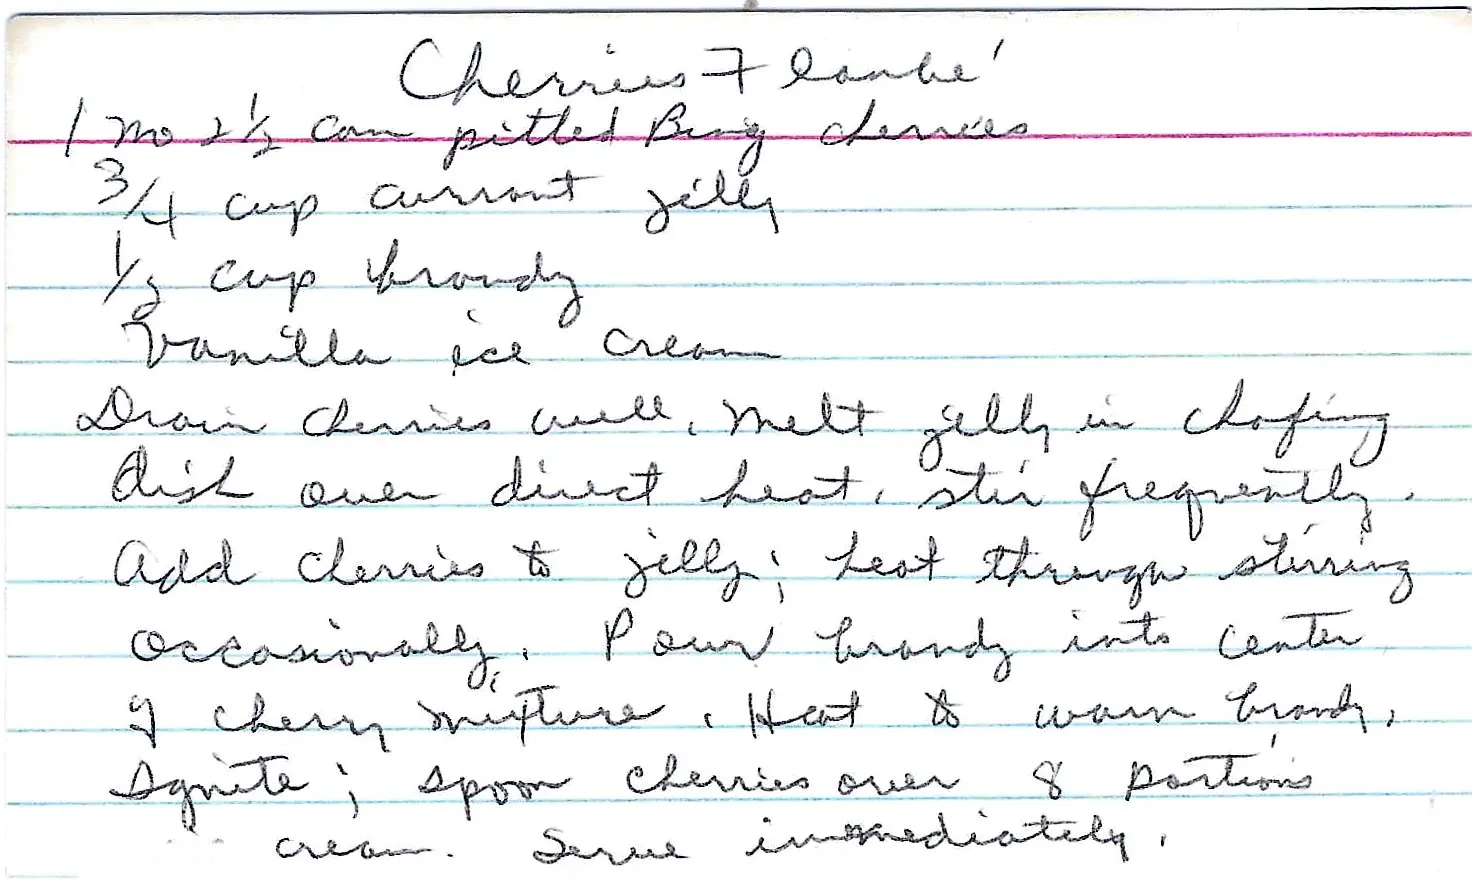 Cherries Flambé
1 No 2 1/2 can pitted Bing cherries
3/4 cup currant jelly
1/2 cup brandy
Vanilla ice cream
Drain cherries well. Melt jelly in chafing
dish over direct heat. stir frequently.
Add cherries to jelly; heat through stirring
occasionally. Pour brandy into center
of cherry mixture. Heat to warn brandy.
Ignite; spoon cherries over 8 portions
cream. Serve immediately.